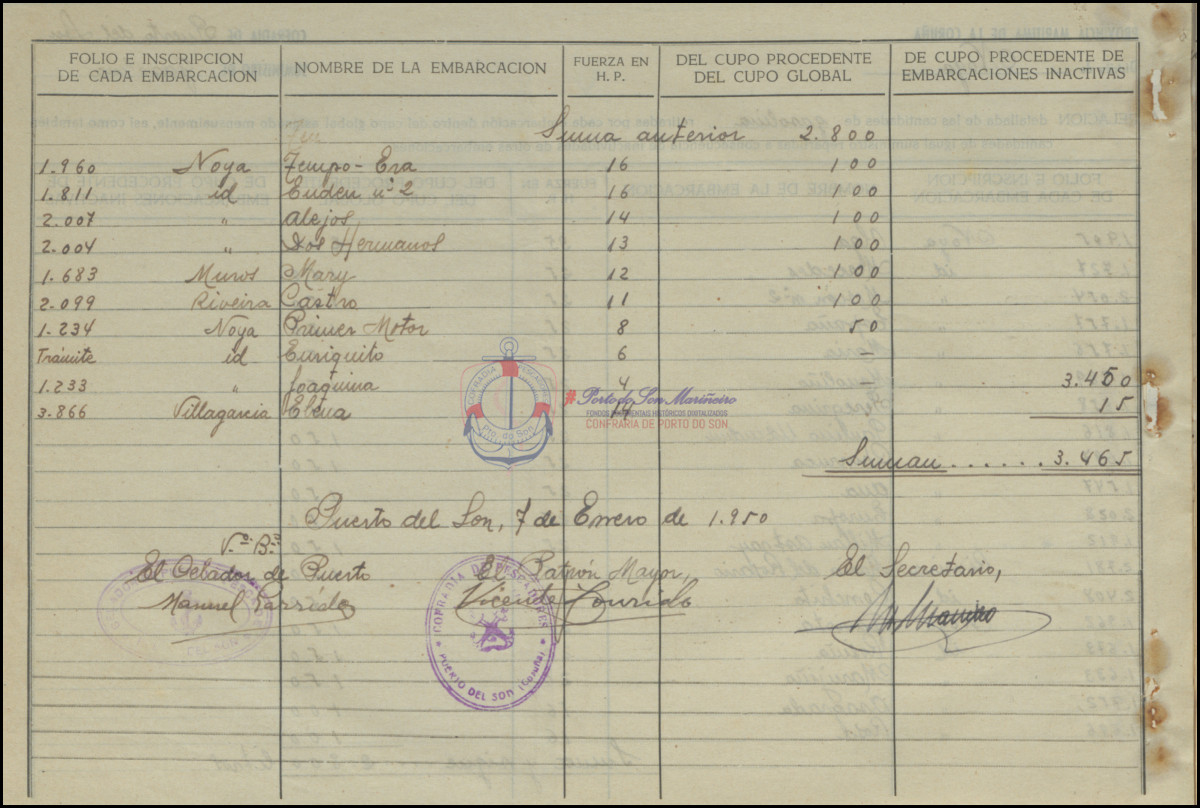 FOLIO E INSCRIPCION DE CADA EMBARCACION NOMBRE DE LA EMBARCACION FUERZA EN H. P. DEL CUPO PROCEDENTE DEL CUPO GLOBAL DE CUPO PROCEDENTE DE EMBARCACIONES INACTIVAS
Suma anterior 2.800
1.960 Noya Tempo-Era 16 100
1.811 id Euden nº 2 16 100
2.007 " Alejos 14 100
2.004 " Dos Hermanos 13 100
1.683 Muros Mary 12 100
2.099 Riveira Castro 11 100
1.234 Noya Primer Motor 8 50
Trámite id Enriquito 6 –
1.233 " Joaquina 4 – 3.450
3.866 Villagarcia Elena 15
Suman...... 3.465
COFRADIA PESCADORES
Pto. do Son
# Porto do Son Mariñeiro
FONDOS DOCUMENTAIS HISTÓRICOS DIXITALIZADOS
CONFRARIA DE PORTO DO SON
Puerto del Son, 7 de Enero de 1.950
Vº. Bº.
El Celador de Puerto El Patrón Mayor, El Secretario,
Manuel Garrido Vicente Tourido
COFRADIA DE PESCADORES
PUERTO DEL SON (CORUÑA)
DEL SON